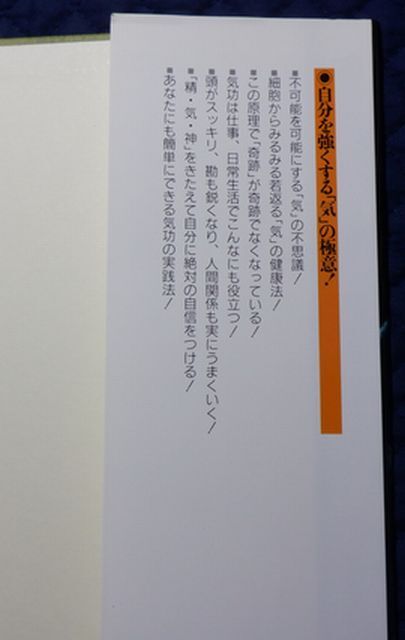 ●自分を強くする「気」の極意！
■不可能を可能にする「気」の不思議！
■細胞からみるみる若返る「気」の健康法！
■この原理で「奇跡」が奇跡でなくなっている！
■気功は仕事、日常生活でこんなにも役立つ！
■頭がスッキリ、勘も鋭くなり、人間関係も実にうまくいく！
■「精・気・神」をきたえて自分に絶対の自信をつける！
■あなたにも簡単にできる気功の実践法！